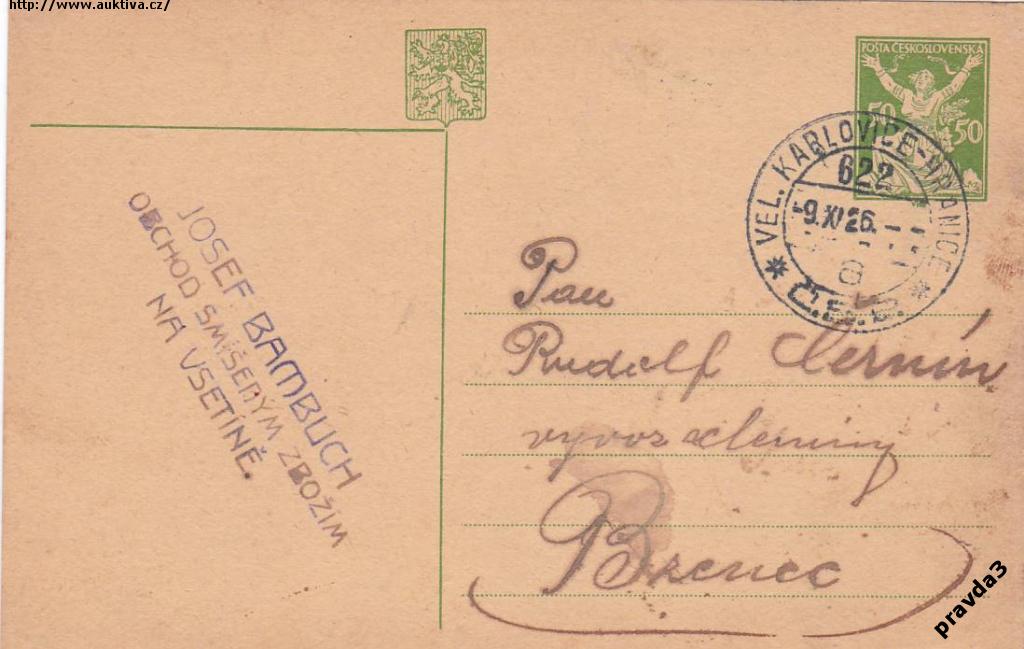 http://www.auktiva.cz/
POŠTA ČESKOSLOVENSKA
50 50
VEL. KARLOVICE-HRANICE
622
-9.XI 26.
Č.S.P.
JOSEF BAMBUCH
OBCHOD SMÍŠENÝM ZBOŽÍM
NA VSETÍNĚ.
Pan
Rudolf Černín
vývoz zeleniny
Bzenec
pravda3